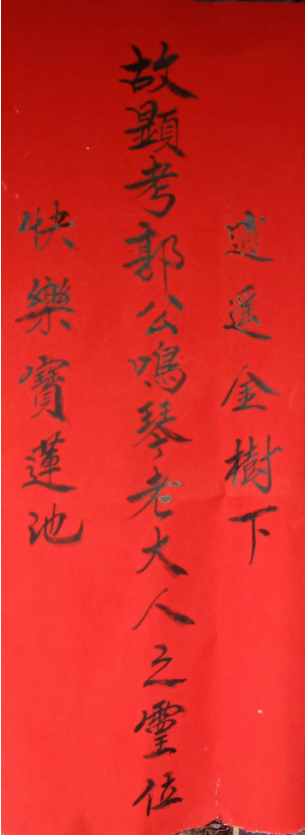 逍遥金樹下
故顯考郭公鳴琴老大人之靈位
快樂寶蓮池